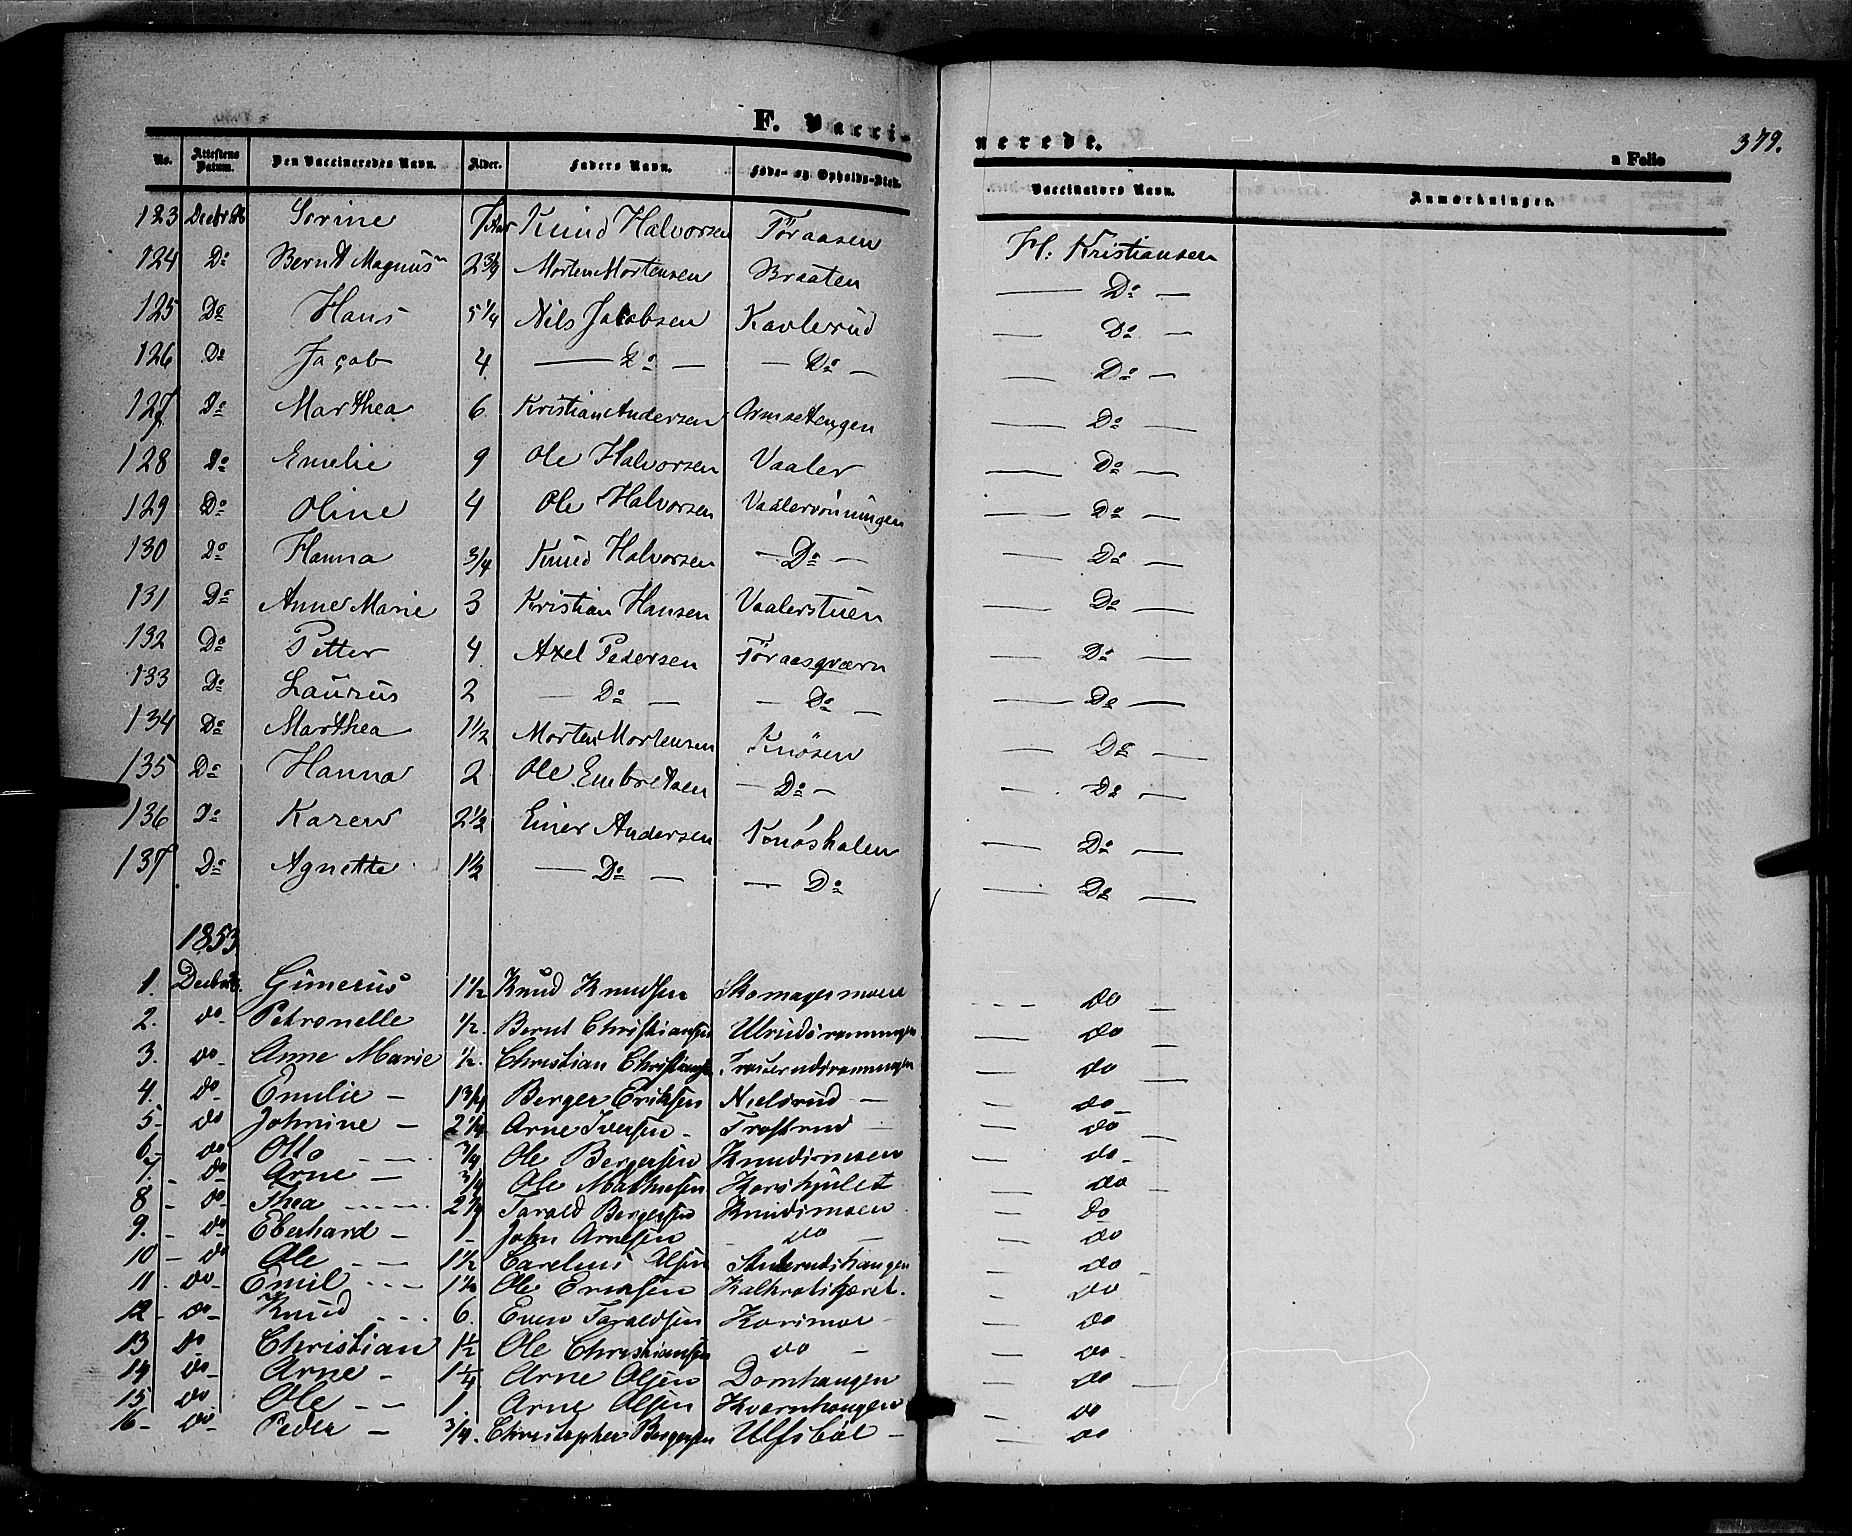 F. Vacci-
nerede.
a Folio 379.
No. Attestens Datum. Den Vaccineredes Navn. Alder. Faders Navn. Føde- og Opholds-Sted. Vaccinators Navn. Anmærkninger.
123 Sorine 7 Aar Knud Halvorsen Töraasen H. Kristiansen
124 Do Bernt Magnus 2 3/4 Morten Mortensen Braaten Do
125 Do Hans 5 1/4 Nils Jacobsen Kavlerud Do
126 Do Jacob 4 Do Do Do
127 Do Marthea 6 Kristian Andersen Do
128 Do Emelie 9 Ole Halvorsen Vaaler Do
129 Do Oline 4 Ole Halvorsen Vaalerrönningen Do
130 Do Hanna 3/4 Knud Halvorsen Do Do
131 Do Anne Marie 3 Kristian Hansen Vaalerstuen Do
132 Do Petter 4 Axel Pedersen Töraasqværn Do
133 Do Laurus 2 Do Do Do
134 Do Marthea 1 1/2 Morten Mortensen Knösen Do
135 Do Hanna 2 Ole Embretsen Do Do
136 Do Karen 2 1/2 Einer Andersen Knöshalen Do
137 Do Agnette 1 1/2 Do Do Do
1853
1. Gunerius 1 1/2 Knud Knudsen Skomagermoen do
2. do Petronelle 1/2. Bernt Christiansen do
3. do Anne Marie 1/2. Christian Christiansen do
4. do Emilie 1 3/4 Berger Eriksen Nielsrud do
5 do Johnine 2 1/4 Arne Iversen Frostrud do
6 do Otto 3/4 Ole Bergersen Knudsmoen do
7. do Arne 3/4 Ole Mathiesen do
8 do Thea 2 1/4 Tarald Bergersen Knudsmoen Do
9. do Eberhard 1 John Arnesen do do
10 do Ole 1 1/2 Carelius Olsen do
11 do Emil Ole Eriksen do
12 do Knud 6. Even Taraldsen Korsmoe do
13 do Christian 1 1/2 Ole Christiansen do do
14 do Arne 1 1/4 Arne Olsen Domhaugen do
15 do Ole 1. Arne Olsen Kværnhaugen do
16 do Peder 3/4. Christopher Bergersen Ulfsböl do